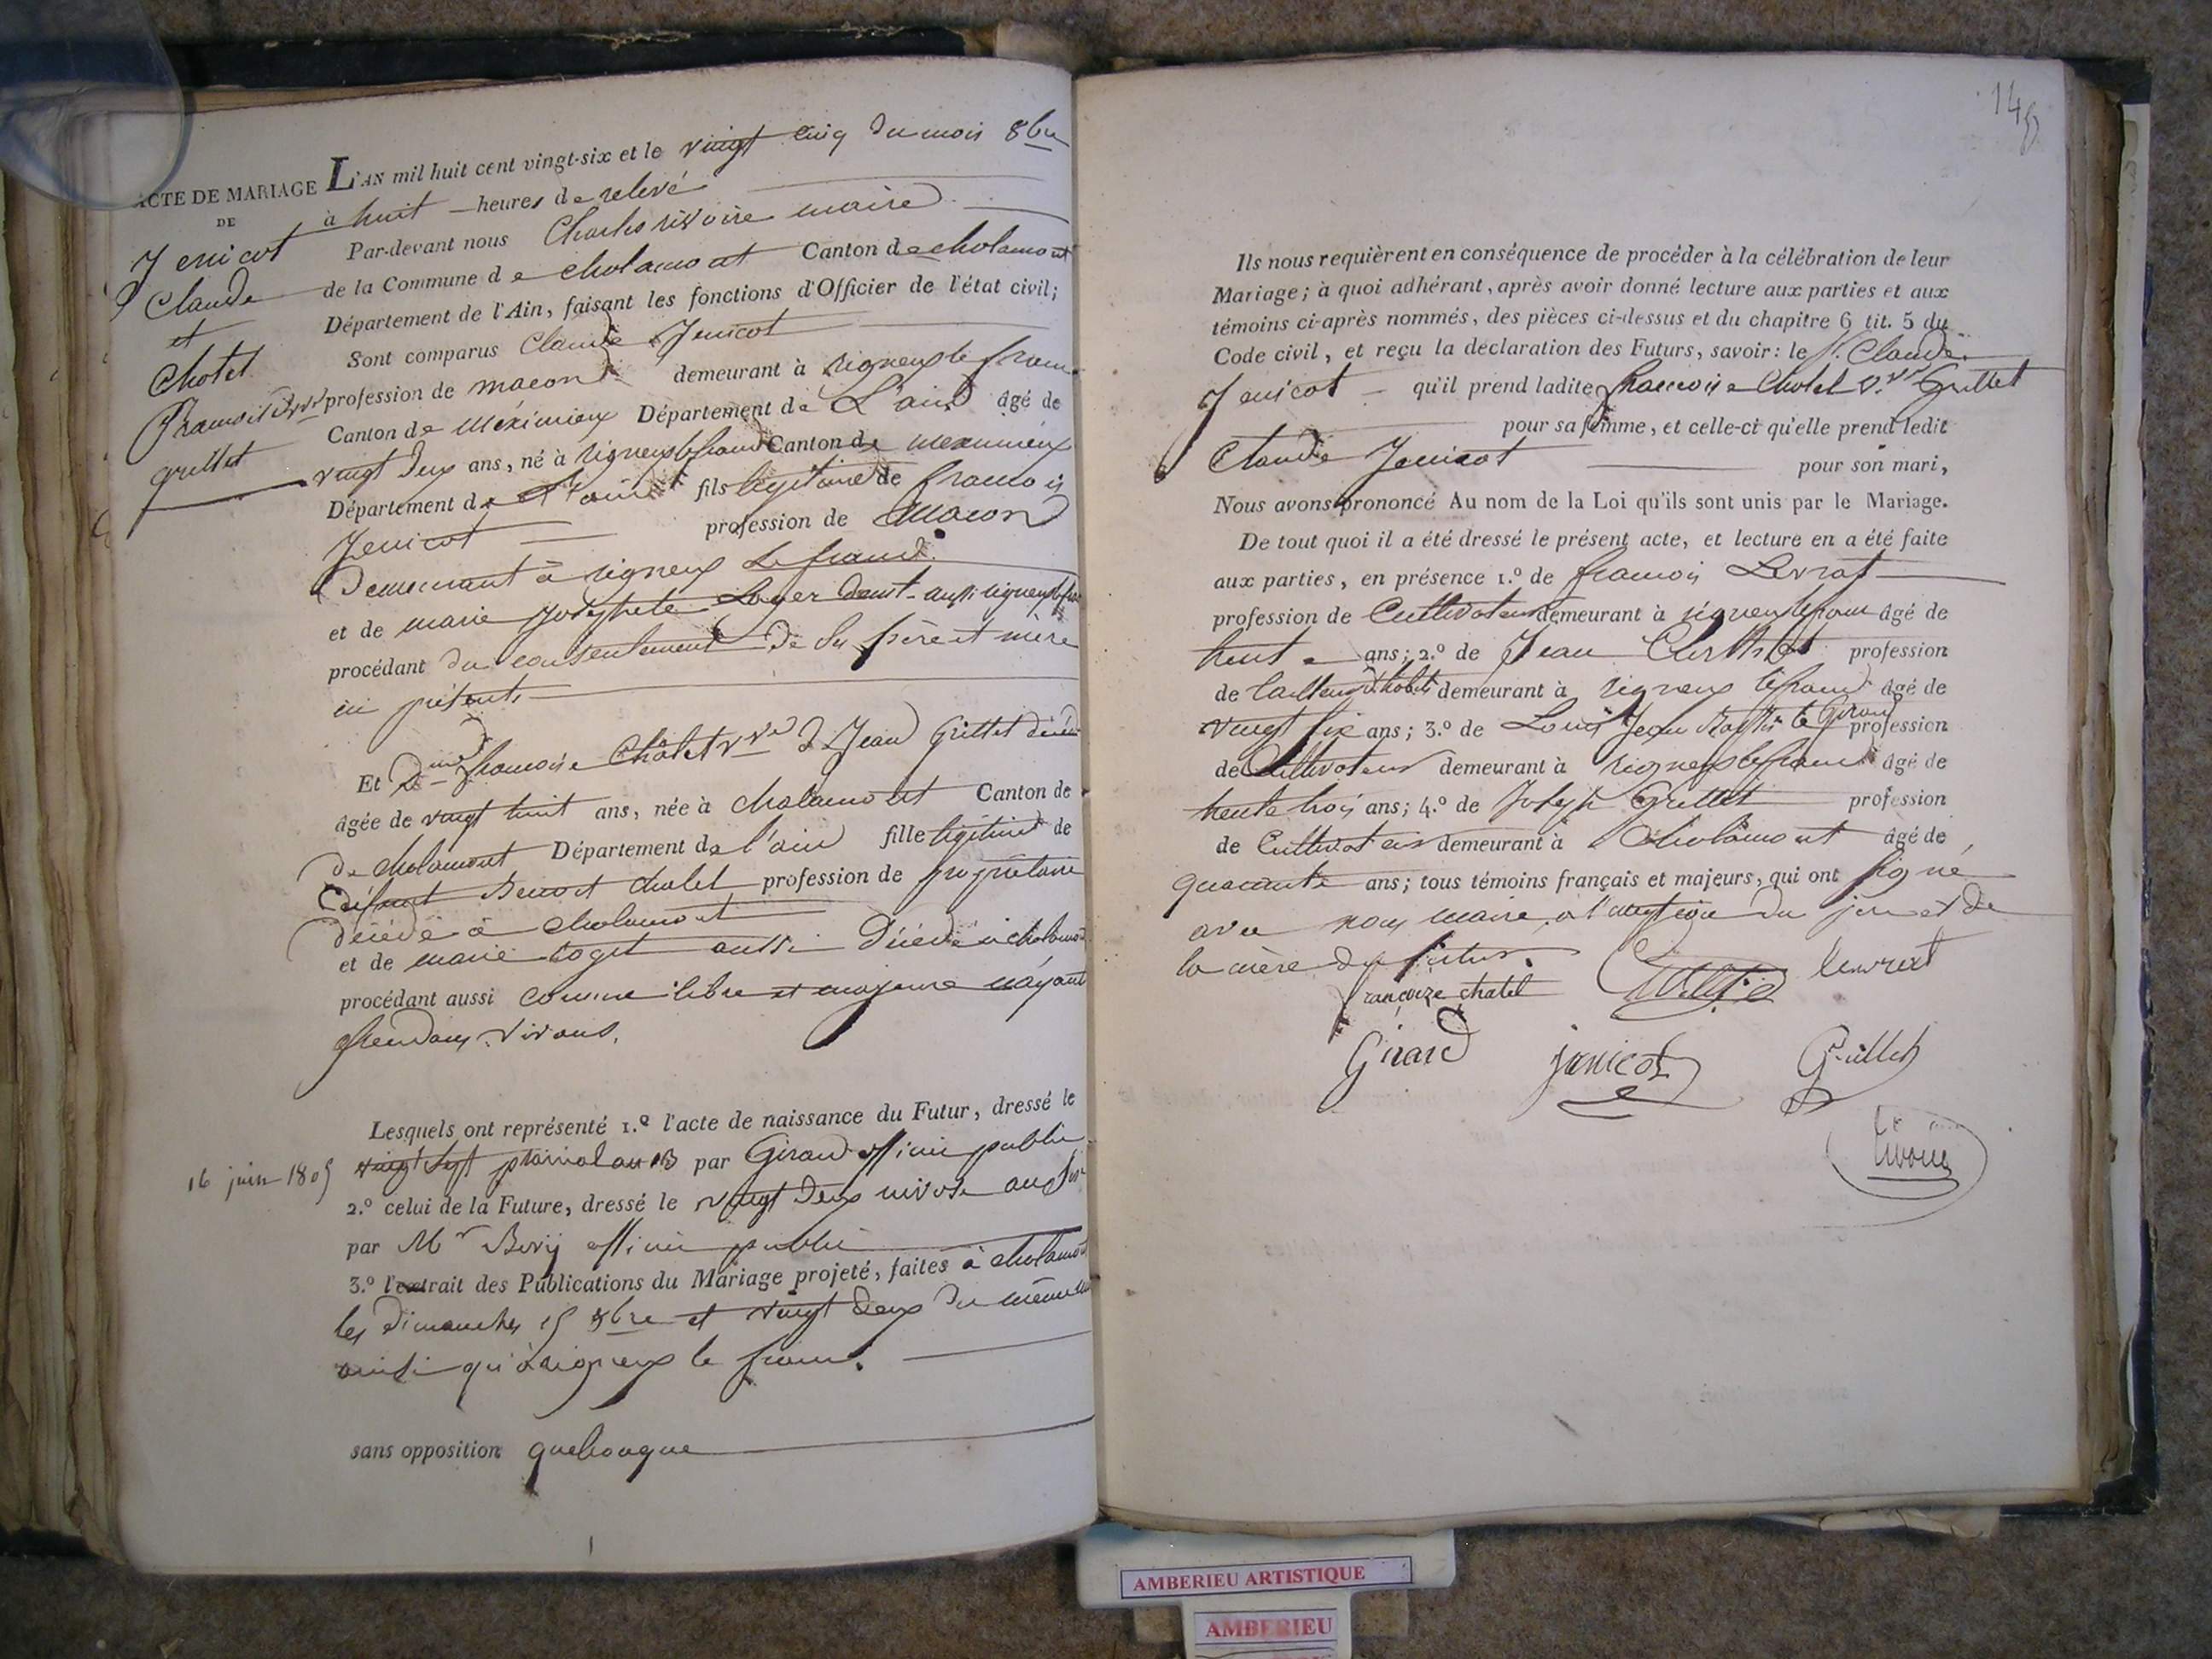 ACTE DE MARIAGE
DE
Jenicot
Claude
et
Chatel
Françoise Vve
grillet
L'AN mil huit cent vingt-six et le vingt cinq du mois 8bre
à huit heures de relevé
Par-devant nous Charles rivoire maire
de la Commune de chalamont Canton de chalamont
Département de l'Ain, faisant les fonctions d'Officier de l'état civil;
Sont comparus Claude Jenicot
profession de macon demeurant à rigneux le franc
Canton de meximieux Département de L'ain âgé de
vingt deux ans, né à rigneux le franc Canton de meximieux
Département de l'ain fils légitime de francois
Jenicot profession de macon
Demeurant à rigneux Le franc
et de marie josephete Loyer demt aussi rigneux
procédant du consentement de ses père et mère
ici présents
Et Dme francoise Châtel vve de Jean Grillet décédé
âgée de vingt huit ans, née à chalamont Canton de
de chalamont Département de l'ain fille légitime de
défunt Benoit chatel profession de propriétaire
décédé à chalamont
et de marie aussi décédée à chalamont
procédant aussi comme libre et majeure n'ayant
vivans.
Lesquels ont représenté 1.º l'acte de naissance du Futur, dressé le
16 juin 1805
vingt sept prairial an 13 par Giraud officier public
2.º celui de la Future, dressé le vingt deux nivose an
par Mr Bovy officier public
3.º l'extrait des Publications du Mariage projeté, faites à chalamont
les dimanches 15 8bre et vingt deux du même
ainsi qu'à rigneux le franc.
sans opposition quelconque
145
Ils nous requièrent en conséquence de procéder à la célébration de leur
Mariage; à quoi adhérant, après avoir donné lecture aux parties et aux
témoins ci-après nommés, des pièces ci-dessus et du chapitre 6 tit. 5 du
Code civil, et reçu la déclaration des Futurs, savoir: le Sr. Claude
Jenicot qu'il prend ladite francoise Chatel Vve Grillet
pour sa femme, et celle-ci qu'elle prend ledit
Claude Jenicot pour son mari,
Nous avons prononcé Au nom de la Loi qu'ils sont unis par le Mariage.
De tout quoi il a été dressé le présent acte, et lecture en a été faite
aux parties, en présence 1.º de francois Levrat
profession de Cultivateur demeurant à rigneux le franc âgé de
trente ans; 2.º de Jean profession
de tailleur d'habits demeurant à rigneux le franc âgé de
vingt six ans; 3.º de Louis Jean Baptiste Girard profession
de Cultivateur demeurant à rigneux le franc âgé de
trente trois ans; 4.º de Joseph Grillet profession
de Cultivateur demeurant à Chalamont âgé de
quarante ans; tous témoins français et majeurs, qui ont signé
avec nous maire à l'exception du père et de
la mère du futur.
françoize chatel levrat
Girard janicot Grillet
rivoire
AMBERIEU ARTISTIQUE
AMBERIEU